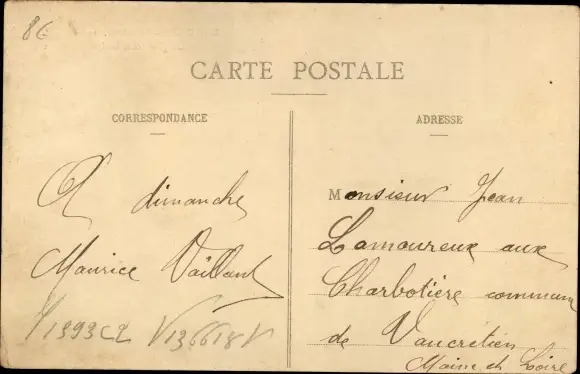 8€
CARTE POSTALE
CORRESPONDANCE
ADRESSE
A dimanche
Maurice Vaillant
Monsieur Jean
Lamoureux aux
Charbotière commune
de Vaucrétien
Maine et Loire
V136618V